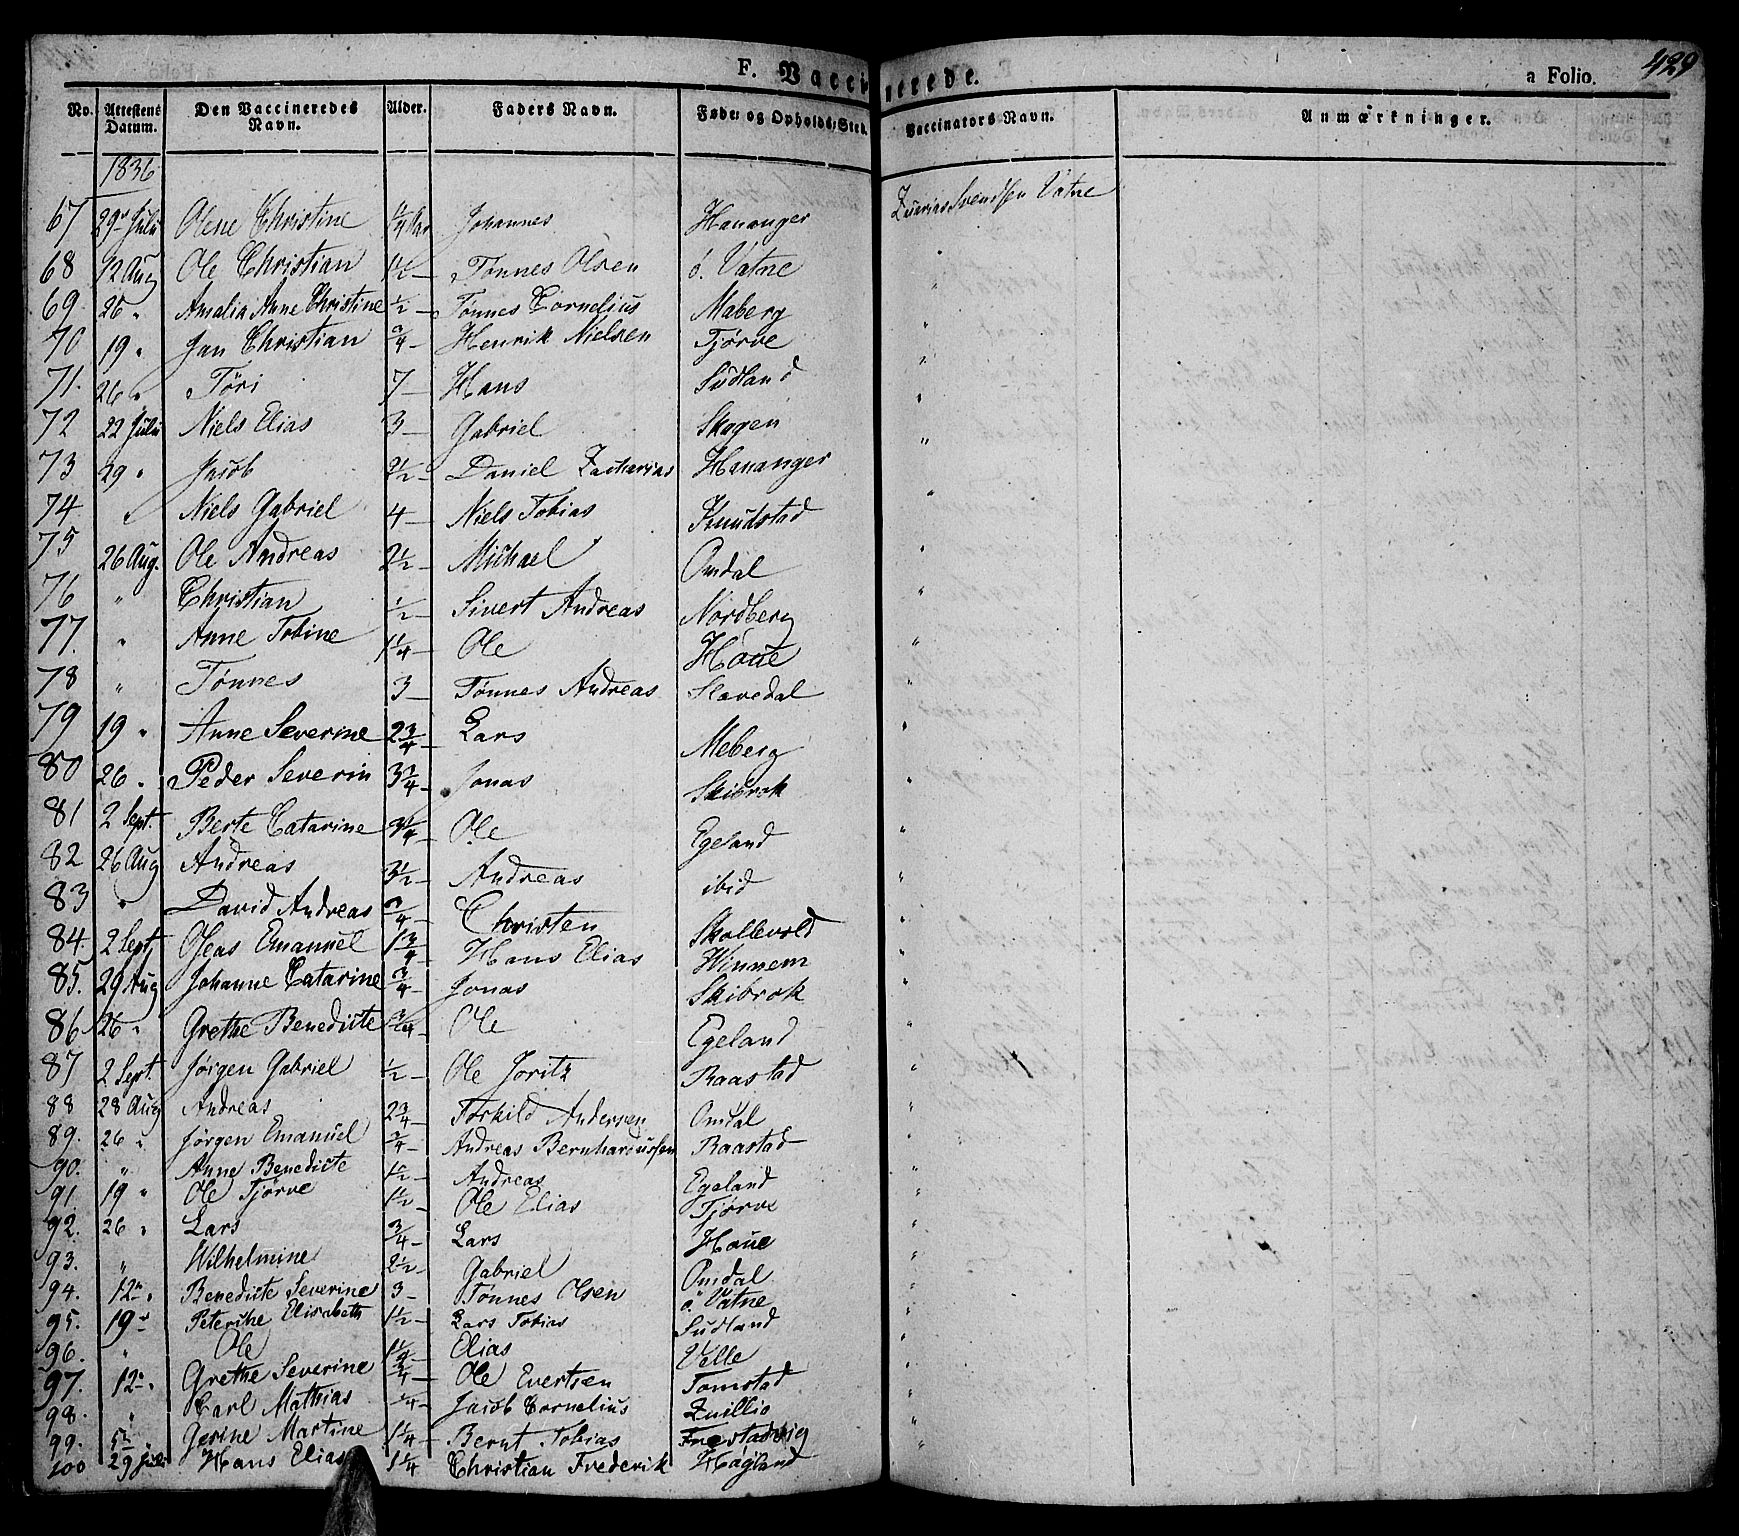 F. Vaccinerede.
a Folio. 429
No. Attestens Datum. Den Vaccineredes Navn. Alder. Faders Navn. Føde- og Opholds-Sted. Vaccinators Navn. Anmærkninger.
1836
67 29de Julii Olene Christine 1/4 Aar Johannes Hananger Svendsen Vatne
68 12 Aug Ole Christian 1½ — Tønnes Olsen ö. Vatne "
69. 26 " Amalia Anne Christine ½ — Tønnes Cornelius Maberg "
70 19 " Jan Christian ¾ — Henrik Nielsen Tjørve "
71. 26 " Töri 7 — Hans Sudland "
72 22 Julii Niels Elias 3 — Gabriel Skogen "
73 29 " Jacob 2½ — Daniel Zacharias Hananger "
74 " Niels Gabriel 4 — Niels Tobias Knudstad "
75 26 Aug. Ole Andreas 2½ — Michael Omdal "
76 " Christian ½ — Sivert Andreas Nordberg "
77. " Anne Tobine 1¼ — Ole Houe "
78 " Tonnes 3 — Tønnes Andreas Slevedal "
79 19 " Anne Severine 2¾ — Lars Meberg "
80 26 " Peder Severin 3¾ — Jonas Skibrok "
81 2 Sept. Berte Catarine 3¼ — Ole Egeland "
82 26 Aug Andreas 3½ — Andreas ibid "
83 " David Andreas ¾ — Christen Skollevold "
84. 2 Sept Oleas Emanuel 1¾ — Hans Elias Hinnem "
85. 29 Aug Johanne Catarine ¾ — Jonas Skibrok "
86 26 " Grethe Benedicte ¾ — Ole Egeland "
87 2 Sept. Jørgen Gabriel ½ — Ole Joritz Raastad "
88 28 Aug Andreas 2¾ — Torkild Andersen Omdal "
89. 26 " Jørgen Emanuel ¾ — Andreas Bernhardussen Raastad "
90. " Anne Benedicte 1½ — Andreas Egeland "
91. 19 " Ole Tjørve 1½ — Ole Elias Tjørve "
92. 26 " Lars ¾ — Lars Houe "
93. " Wilhelmine 2½ — Gabriel Omdal "
94. 12te " Benedicte Severine 3 — Tønnes Olsen ö. Vatne "
95. 19de Peterike Elisabeth 1½ — Lars Tobias Sudland "
96. " Ole 1¼ — Elias Velle "
97. 12te " Grethe Severine ¾ — Ole Evertsen Tomstad "
98. " Carl Mathias ¼ — Jacob Cornelius "
99. 5te Gerine Martine 1¼ — Bernt Tobias "
100 29 Juli Hans Elias 1¼ Christian Frederik Høgland